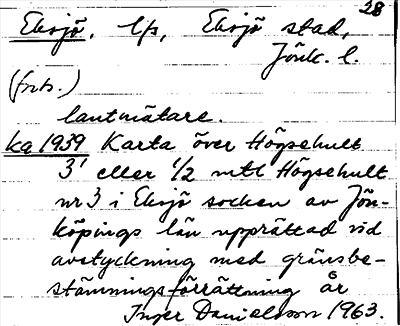 28
Eksjö, lfs, Eksjö stad,
Jönk. l.
(forts.)
lantmätare.
ka 1939 Karta över Högsehult
3¹ eller 1/2 mtl Högsehult
nr 3 i Eksjö socken av Jön-
köpings län upprättad vid
avstyckning med gränsbe-
stämningsförrättning år
Inger Danielsson 1963.